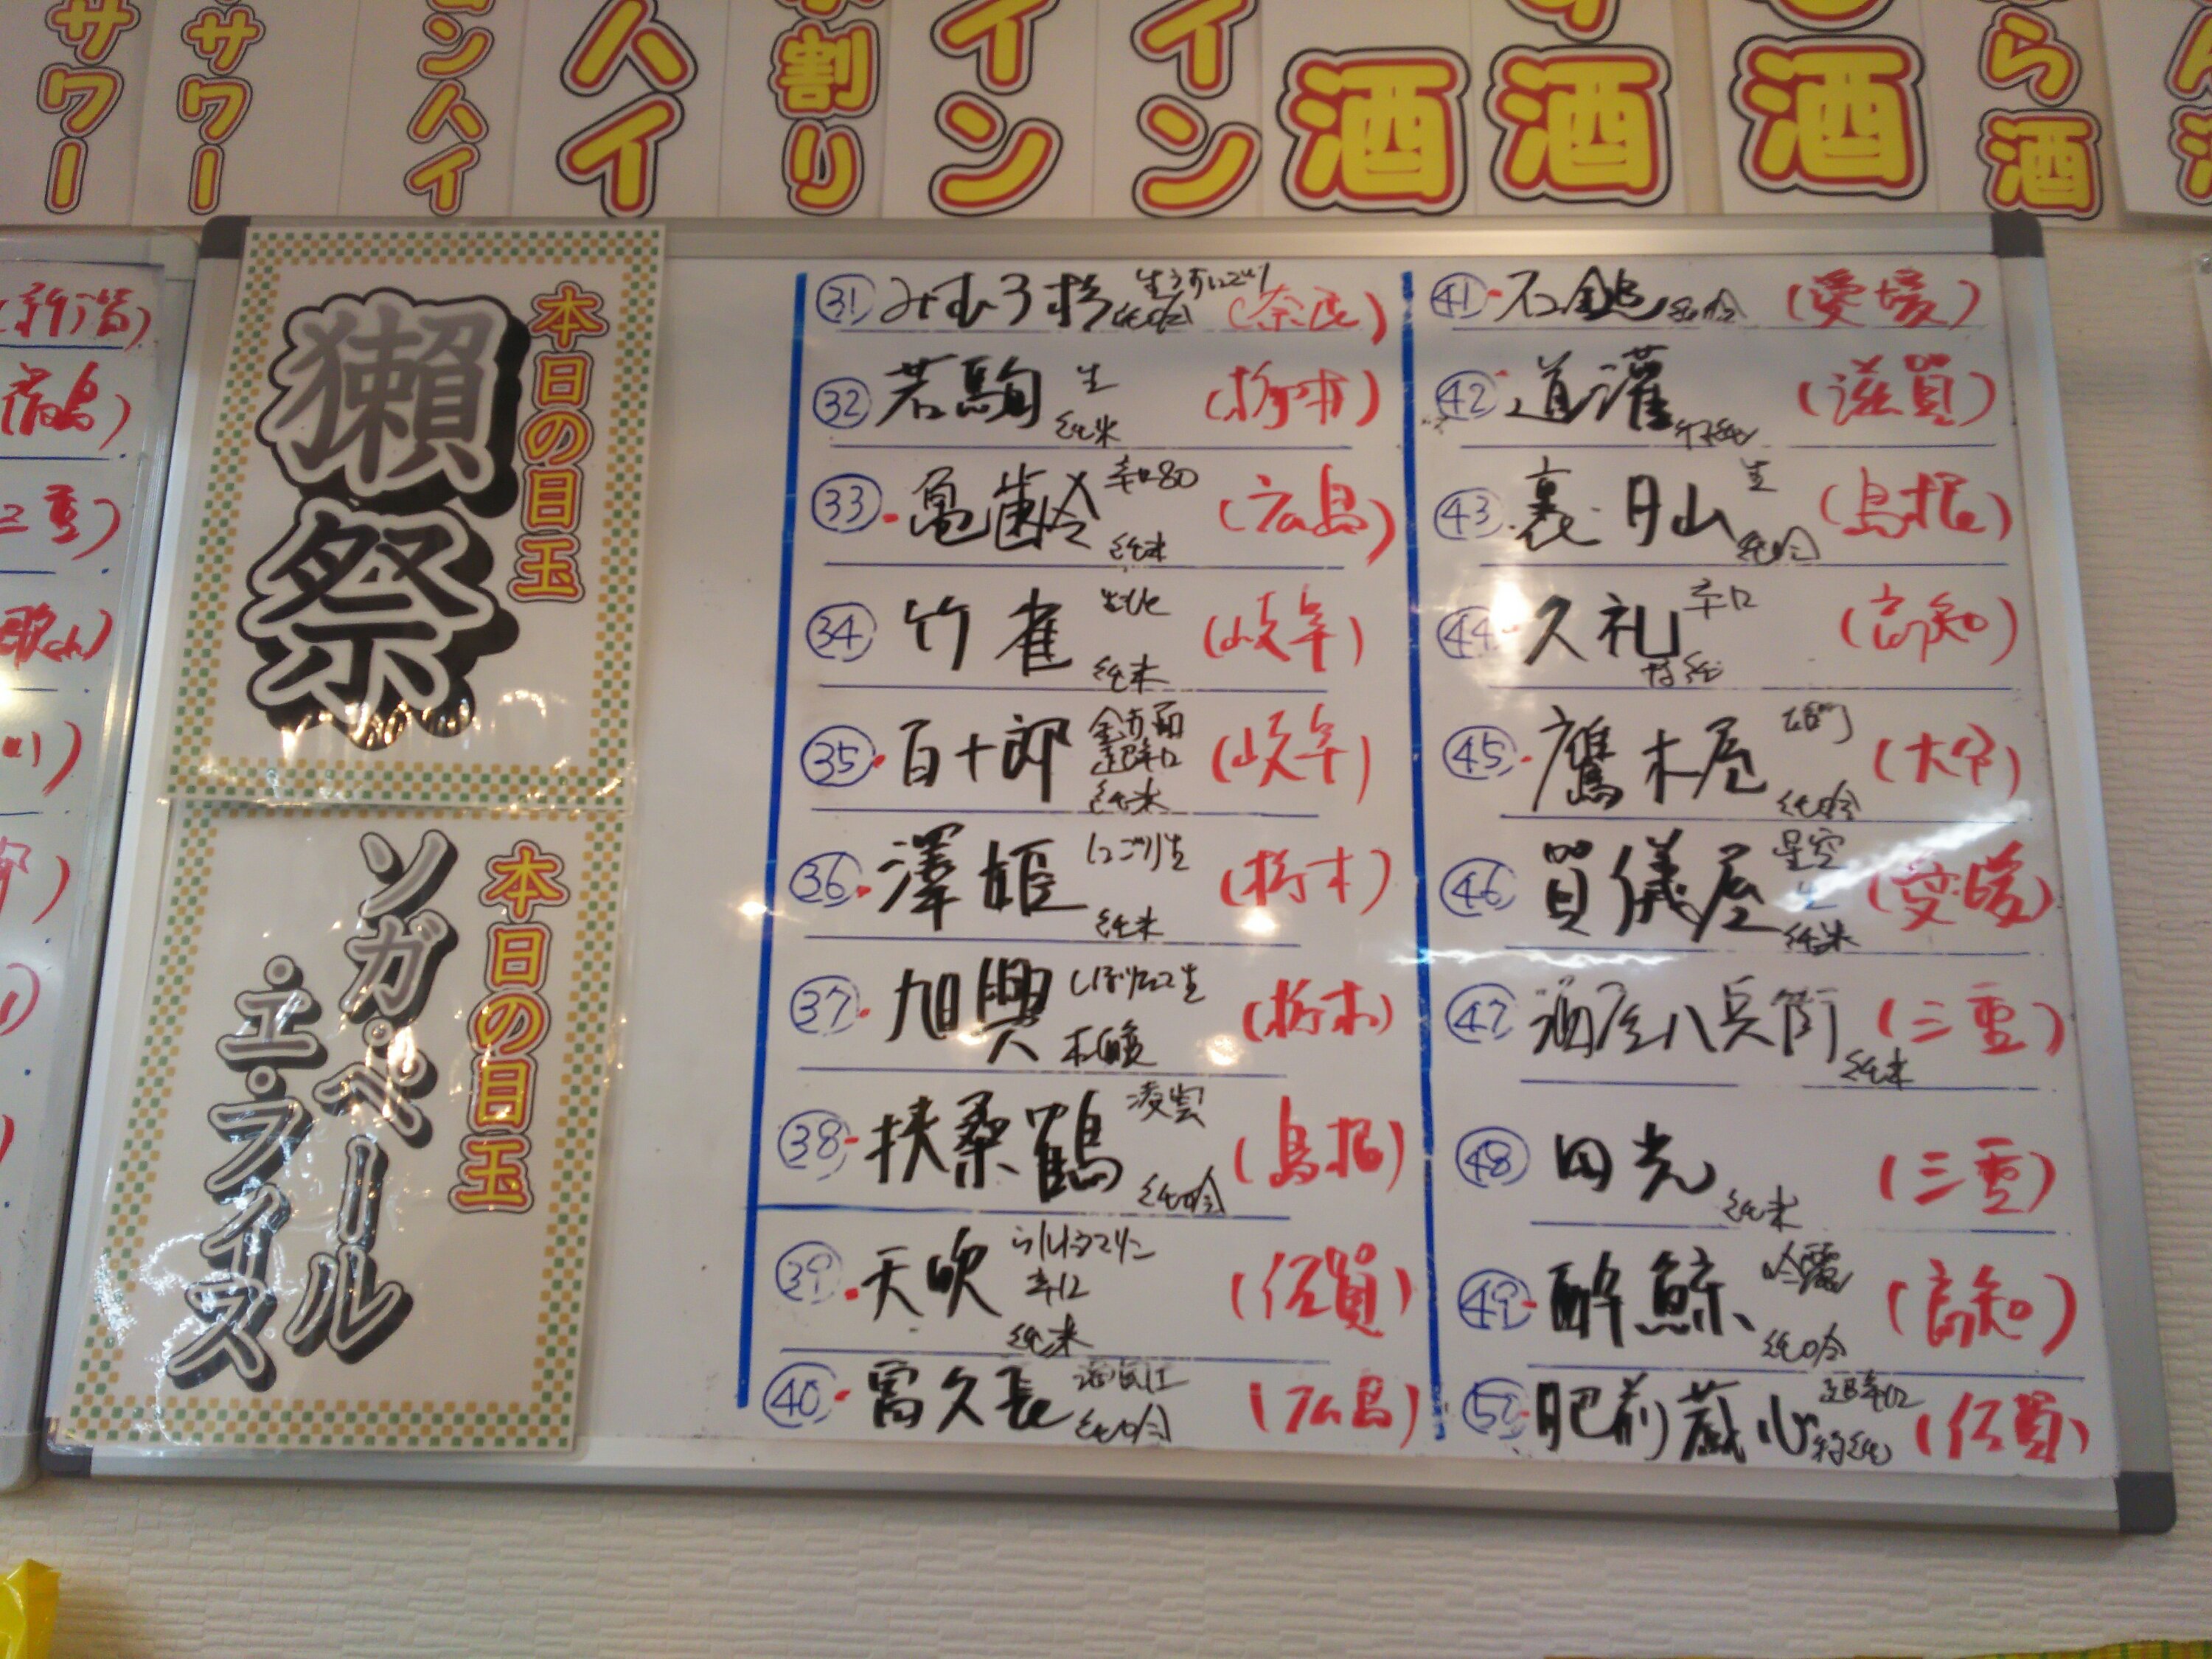 サワー
サワー
ンハイ
ハイ
水割り
イン
イン
酒
酒
酒
ら酒
(新潟)
(福島)
三重)
川)
本日の目玉
獺祭
本日の目玉
ソガ・ペール
エ・フィース
㉛ みむろ杉 生うすにごり 純吟 (奈良)
㉜ 若駒 生 純米 (栃木)
㉝ 亀齢 辛口80 純米 (広島)
㉞ 竹雀 純米 (岐阜)
㉟ 百十郎 超辛口 純米 (岐阜)
㊱ 澤姫 にごり生 純米 (栃木)
㊲ 旭興 しぼりたて生 (栃木)
㊳ 扶桑鶴 凌雲 純吟 (島根)
㊴ 天吹 辛口 純米 (佐賀)
㊵ 富久長 純吟 (広島)
㊶ 石鎚 純吟 (愛媛)
㊷ 道灌 特純 (滋賀)
㊸ 裏月山 生 純吟 (島根)
㊹ 久礼 辛口 特純 (高知)
㊺ 鷹木屋 純吟 (大分)
㊻ 賀儀屋 星空 生 純米 (愛媛)
㊼ 酒屋八兵衛 純米 (三重)
㊽ 田光 純米 (三重)
㊾ 酔鯨 吟麗 純吟 (高知)
㊿ 肥前蔵心 超辛口 特純 (佐賀)